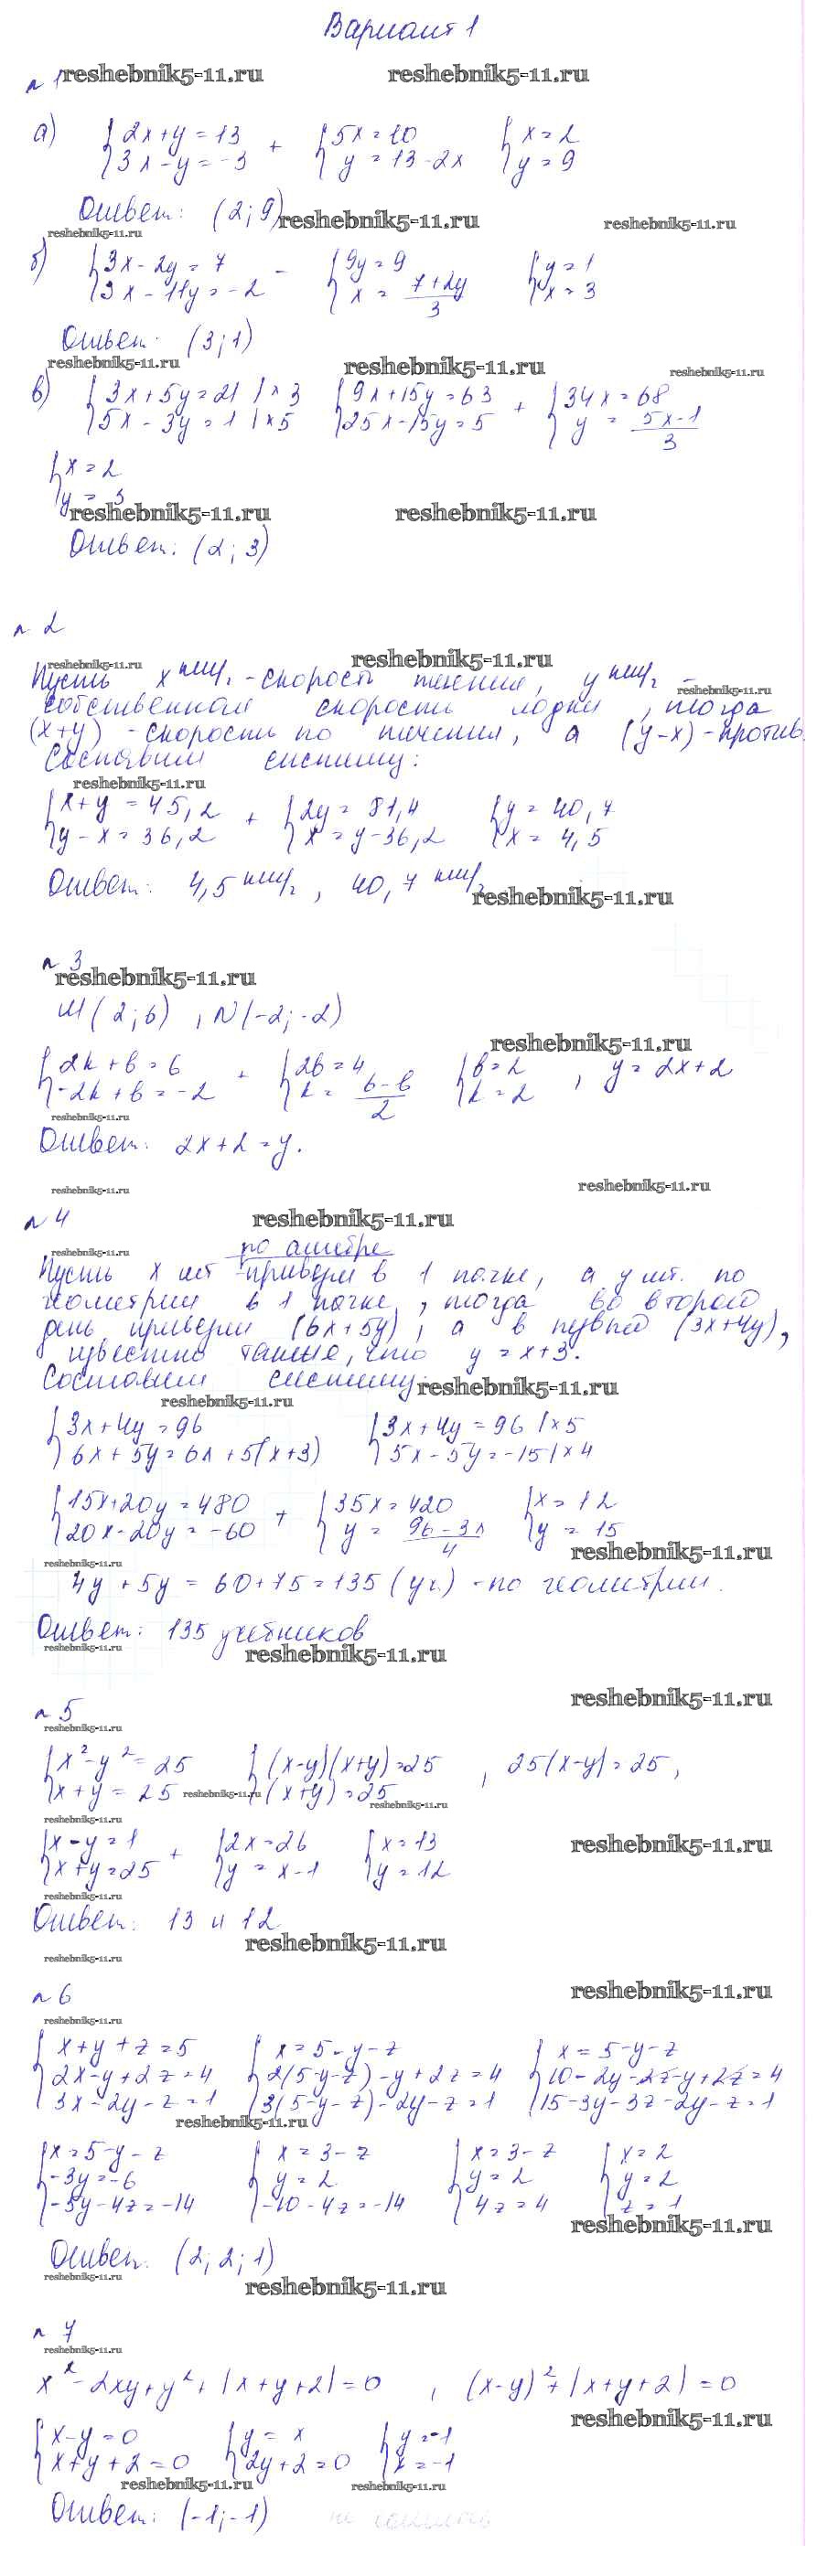 Вариант 1
№ 1 reshebnik5-11.ru reshebnik5-11.ru
а) {2x+y=13 {3x-y=-3 + {5x=10 {y=13-2x {x=2 {y=9
Ответ: (2;9) reshebnik5-11.ru reshebnik5-11.ru
reshebnik5-11.ru
б) {3x-2y=7 {3x-11y=-2 - {9y=9 {x=(7+2y)/3 {y=1 {x=3
Ответ: (3;1)
reshebnik5-11.ru reshebnik5-11.ru reshebnik5-11.ru
в) {3x+5y=21 |×3 {5x-3y=1 |×5 {9x+15y=63 {25x-15y=5 + {34x=68 {y=(5x-1)/3
{x=2 {y=3
reshebnik5-11.ru reshebnik5-11.ru
Ответ: (2;3)
№ 2
reshebnik5-11.ru reshebnik5-11.ru
Пусть x км/ч - скорость течения, y км/ч -
reshebnik5-11.ru
собственная скорость лодки, тогда
(x+y) - скорость по течения, а (y-x) - против.
Составим систему:
reshebnik5-11.ru
{x+y=45,2 {y-x=36,2 + {2y=81,4 {x=y-36,2 {y=40,7 {x=4,5
Ответ: 4,5 км/ч, 40,7 км/ч
reshebnik5-11.ru
№ 3
reshebnik5-11.ru
M(2;6), N(-2;-2)
reshebnik5-11.ru
{2k+b=6 {-2k+b=-2 + {2b=4 {k=(6-b)/2 {b=2 {k=2 , y=2x+2
reshebnik5-11.ru
Ответ: 2x+2=y.
reshebnik5-11.ru reshebnik5-11.ru
№ 4 reshebnik5-11.ru
reshebnik5-11.ru по алгебре
Пусть x шт привезли в 1 пачке, а y шт. по
геометрии в 1 пачке, тогда во второй
день привезли (6x+5y), а в первый (3x+4y),
известно также, что y=x+3.
Составим систему: reshebnik5-11.ru
reshebnik5-11.ru
{3x+4y=96 {6x+5y=6x+5(x+3) {3x+4y=96 |×5 {5x-5y=-15 |×4
{15x+20y=480 {20x-20y=-60 + {35x=420 {y=(96-3x)/4 {x=12 {y=15
reshebnik5-11.ru
reshebnik5-11.ru
4y+5y=60+75=135 (уч.) - по геометрии.
Ответ: 135 учебников
reshebnik5-11.ru reshebnik5-11.ru
reshebnik5-11.ru
№ 5
reshebnik5-11.ru
{x²-y²=25 {x+y=25 {(x-y)(x+y)=25 {(x+y)=25 , 25(x-y)=25,
reshebnik5-11.ru reshebnik5-11.ru
reshebnik5-11.ru
{x-y=1 {x+y=25 + {2x=26 {y=x-1 {x=13 {y=12
reshebnik5-11.ru
reshebnik5-11.ru
Ответ: 13 и 12
reshebnik5-11.ru
reshebnik5-11.ru
№ 6 reshebnik5-11.ru
reshebnik5-11.ru
{x+y+z=5 {2x-y+2z=4 {3x-2y-z=1 {x=5-y-z {2(5-y-z)-y+2z=4 {3(5-y-z)-2y-z=1 {x=5-y-z {10-2y-2z-y+2z=4 {15-3y-3z-2y-z=1
reshebnik5-11.ru
{x=5-y-z {-3y=-6 {-5y-4z=-14 {x=3-z {y=2 {-10-4z=-14 {x=3-z {y=2 {4z=4 {x=2 {y=2 {z=1
reshebnik5-11.ru
Ответ: (2;2;1)
reshebnik5-11.ru reshebnik5-11.ru
№ 7
reshebnik5-11.ru
x²-2xy+y²+|x+y+2|=0 , (x-y)²+|x+y+2|=0
reshebnik5-11.ru
{x-y=0 {x+y+2=0 {y=x {2y+2=0 {y=-1 {x=-1
reshebnik5-11.ru reshebnik5-11.ru
Ответ: (-1;-1)